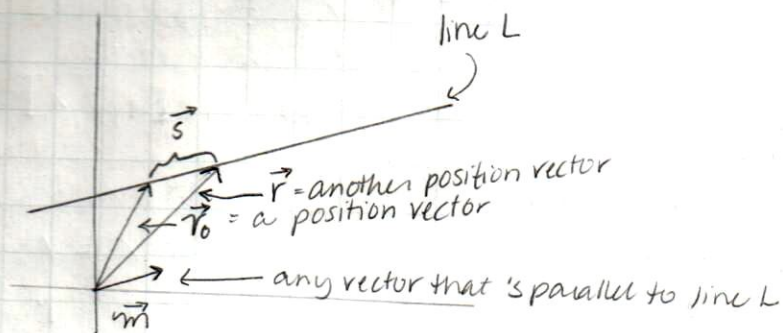 line L
s⃗
r⃗ = another position vector
r⃗₀ = a position vector
any vector that's parallel to line L
m⃗